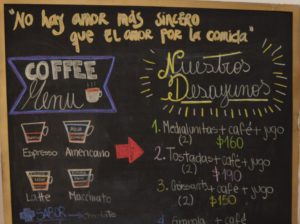 "No hay amor más sincero
que el amor por la comida"
COFFEE
Menu
Espresso
Americano
Latte
Macchiato
SABOR
Nuestros
Desayunos
1. Medialunitas + café + jugo
(2) $160
2. Tostadas + café + jugo
(2) $190
3. Croissants + café + jugo
(2) $180
4.